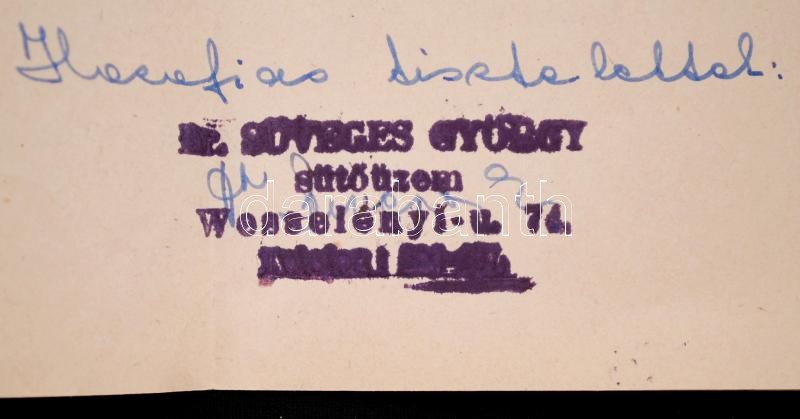 Hazafias tisztelettel:
Dr. SÜVEGES GYÖRGY
sütőüzem
Wesselényi-u. 74.
darabanth